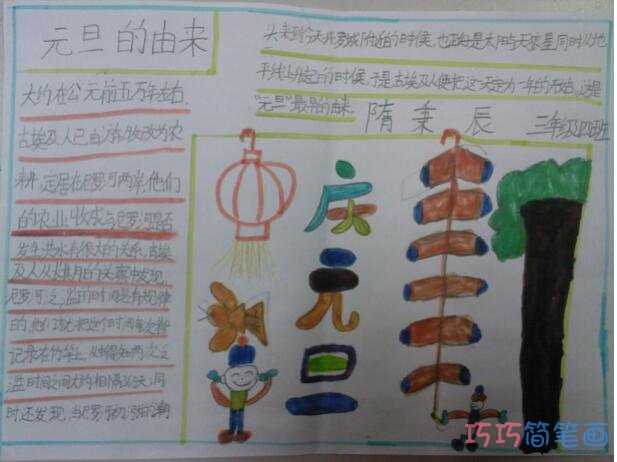 元旦的由来
大约在公元前五万年左右,
古埃及人已由游牧改为农
耕,定居在尼罗河两岸,他们
的农业收成与尼罗河是否
发生洪水有很大的关系,古埃
及人从长期的观察中发现,
尼罗河泛滥的时间是有规律
的,他们就把这个时间每次都
记录在竹竿上,从中得知两次泛
滥时间之间大约相隔365天;同
时还发现,当尼罗河初涨的潮
头来到今天开罗城附近的时候,也正好是太阳与天狼星同时从地
平线升起的时候,于是古埃及人便把这一天定为一年的开始。这是
"元旦"最早的由来。
隋秉辰 三年级四班
庆
元
旦
巧巧简笔画